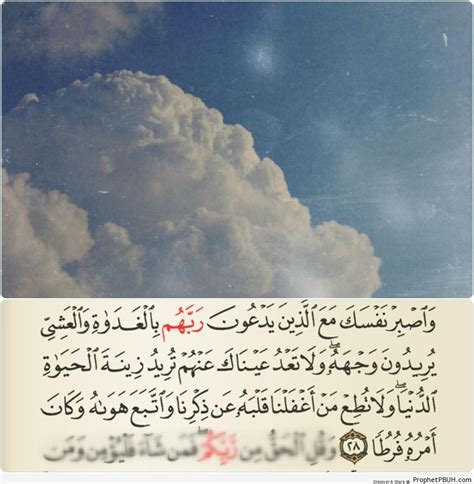 وَٱصْبِرْ نَفْسَكَ مَعَ ٱلَّذِينَ يَدْعُونَ رَبَّهُم بِٱلْغَدَوٰةِ وَٱلْعَشِىِّ
يُرِيدُونَ وَجْهَهُۥ ۖ وَلَا تَعْدُ عَيْنَاكَ عَنْهُمْ تُرِيدُ زِينَةَ ٱلْحَيَوٰةِ
ٱلدُّنْيَا ۖ وَلَا تُطِعْ مَنْ أَغْفَلْنَا قَلْبَهُۥ عَن ذِكْرِنَا وَٱتَّبَعَ هَوَىٰهُ وَكَانَ
أَمْرُهُۥ فُرُطًا ٢٨ وَقُلِ ٱلْحَقُّ مِن رَّبِّكُمْ ۖ فَمَن شَآءَ فَلْيُؤْمِن وَمَن
Discover & Share @ ProphetPBUH.com